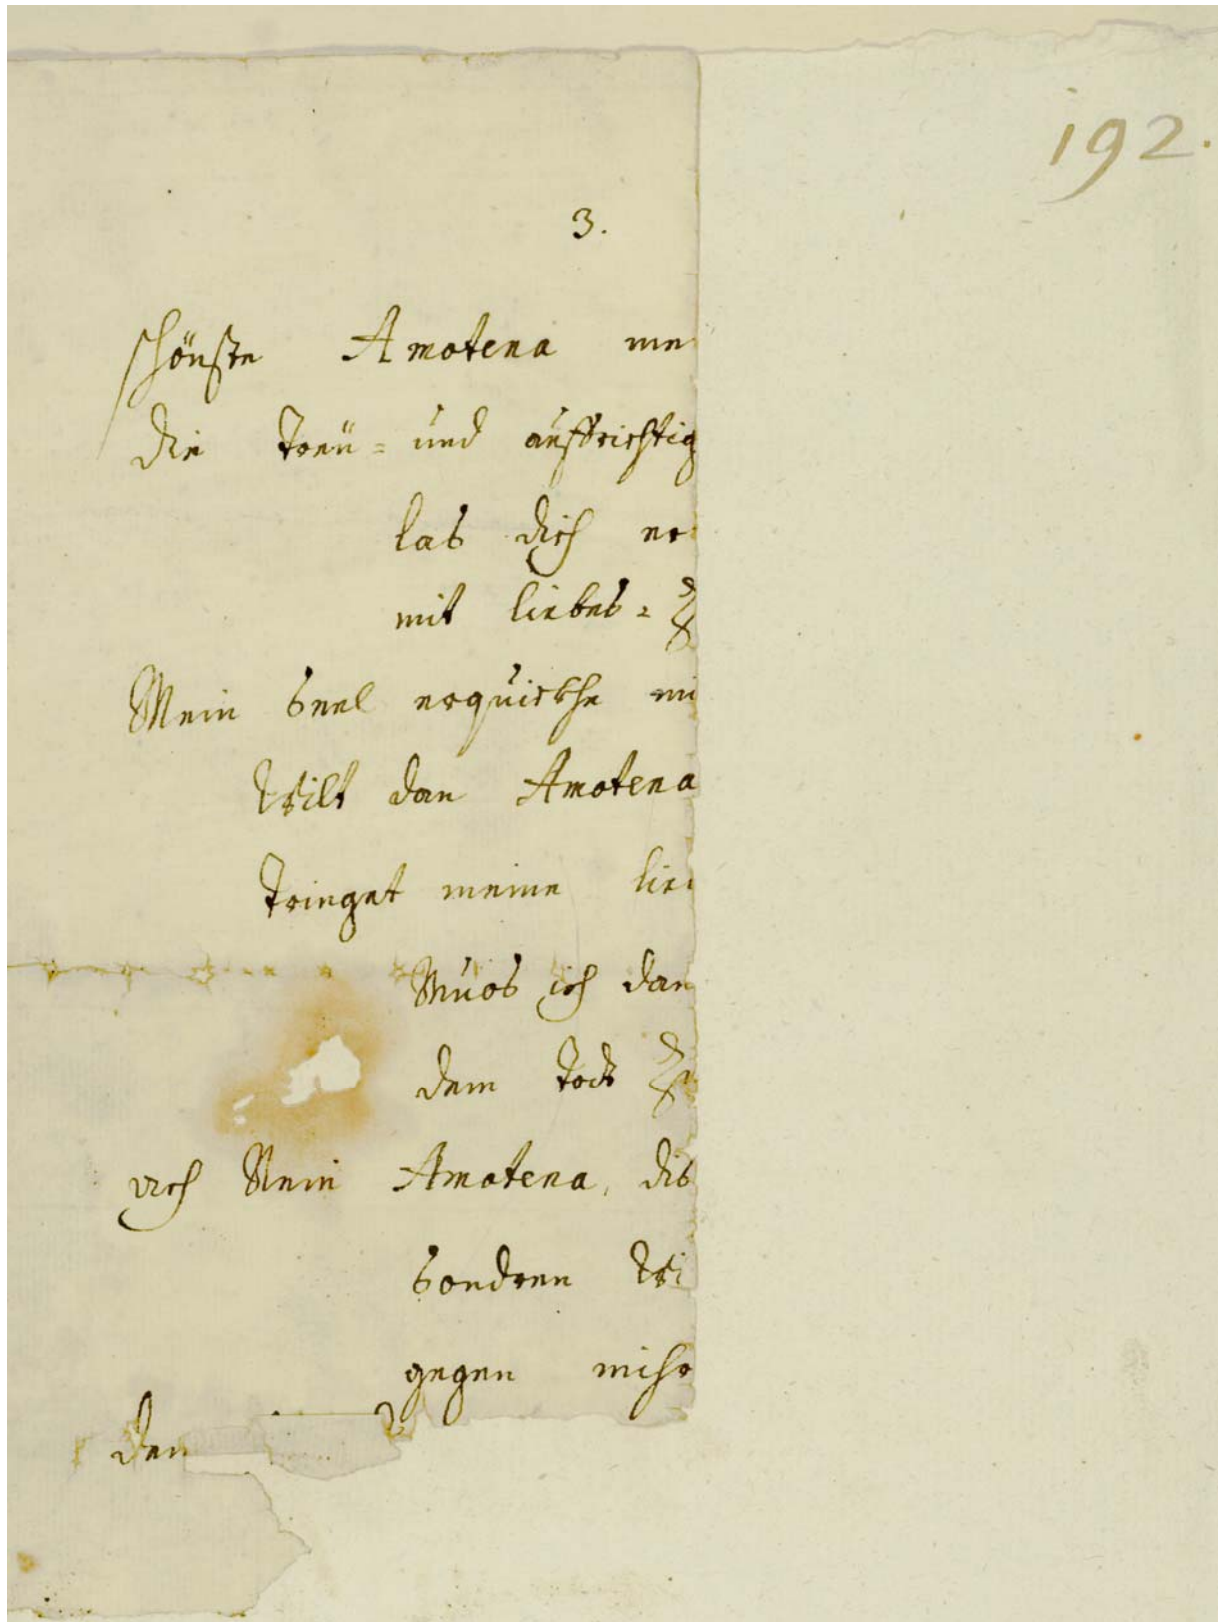 192.
3.
schönste Amotena me
die treü= und auffrichtig
las dich er
mit liebes=
Mein seel erquickhe mi
Wilt dan Amotena
tringet meine lie
Muos ich dan
dem todt
ach Nein Amotena, dis
sondren Wi
gegen mihr
den